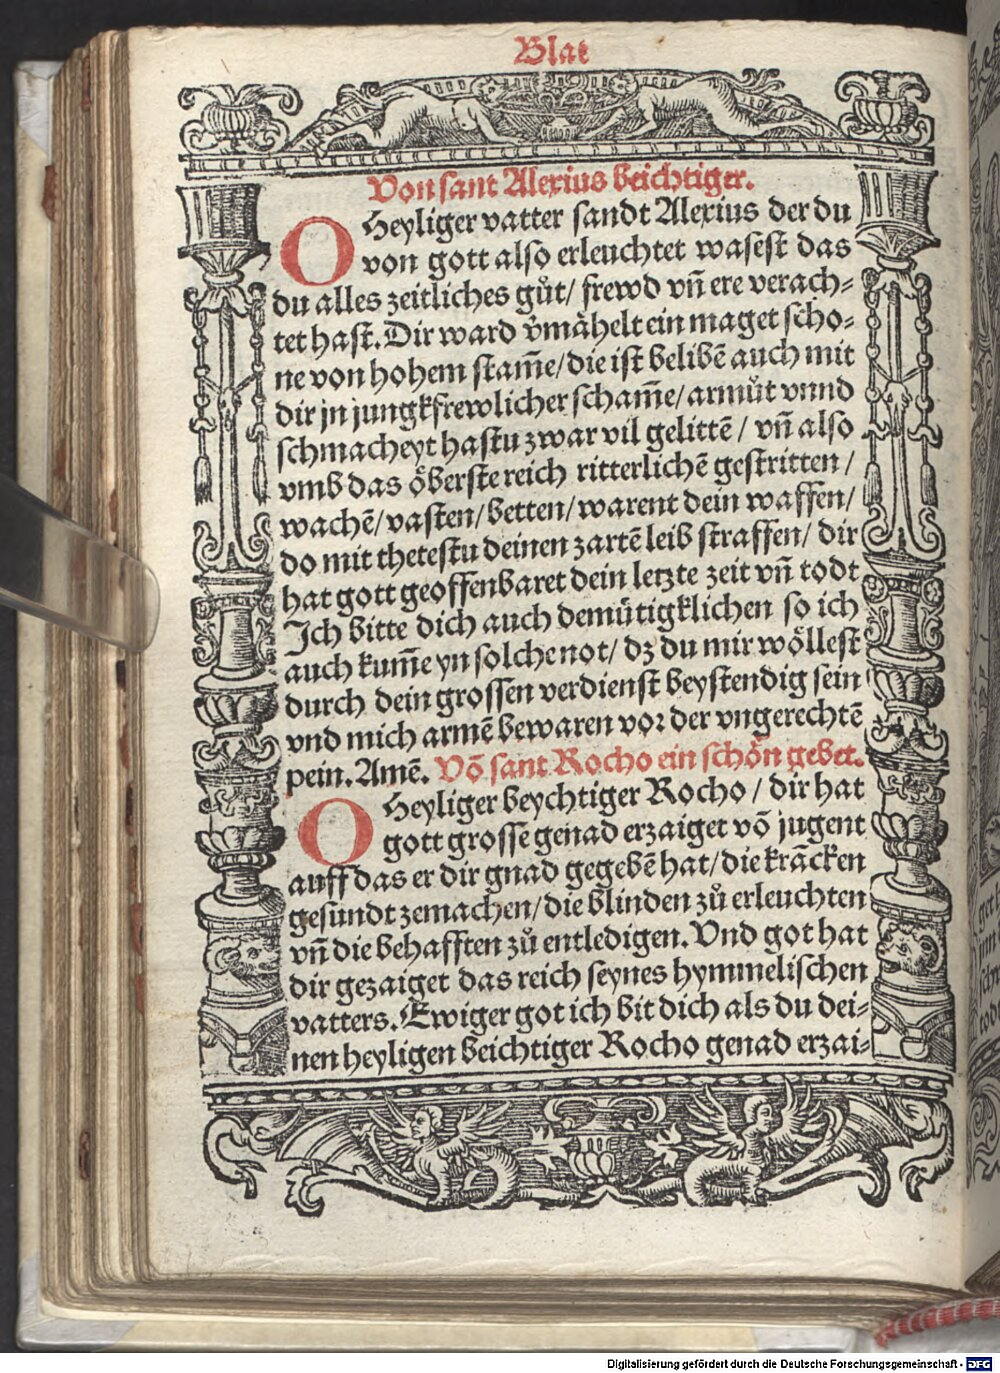 Blat
Von sant Alexius beichtiger.
O Heyliger vatter sandt Alexius der du
von gott also erleuchtet wasest das
du alles zeitliches gůt/ frewd vñ ere verach⸗
tet hast. Dir ward v̄mähelt ein maget scho⸗
ne von hohem stam̄e/ die ist belibē auch mit
dir jn jungkfrewlicher scham̄e/ armůt vnnd
schmacheyt hastu zwar vil gelittē/ vñ also
vmb das öberste reich ritterlichē gestritten/
wachē/ vasten/ betten/ warent dein waffen/
do mit thetestu deinen zartē leib straffen/ dir
hat gott geoffenbaret dein letzte zeit vñ todt
Ich bitte dich auch demütigklichen so ich
auch kum̄e yn solche not/ dz du mir wöllest
durch dein grossen verdienst beystendig sein
vnd mich armē bewaren vor der vngerechtē
pein. Amē. Vō sant Rocho ein schön gebet.
O Heyliger beychtiger Rocho/ dir hat
gott grosse genad erzaiget vō jugent
auff das er dir gnad gegebē hat/ die krācken
gesundt zemachen/ die blinden zů erleuchten
vñ die behafften zů entledigen. Vnd got hat
dir gezaiget das reich seynes hymmelischen
vatters. Ewiger got ich bit dich als du dei⸗
nen heyligen beichtiger Rocho genad erzai⸗
Digitalisierung gefördert durch die Deutsche Forschungsgemeinschaft - DFG